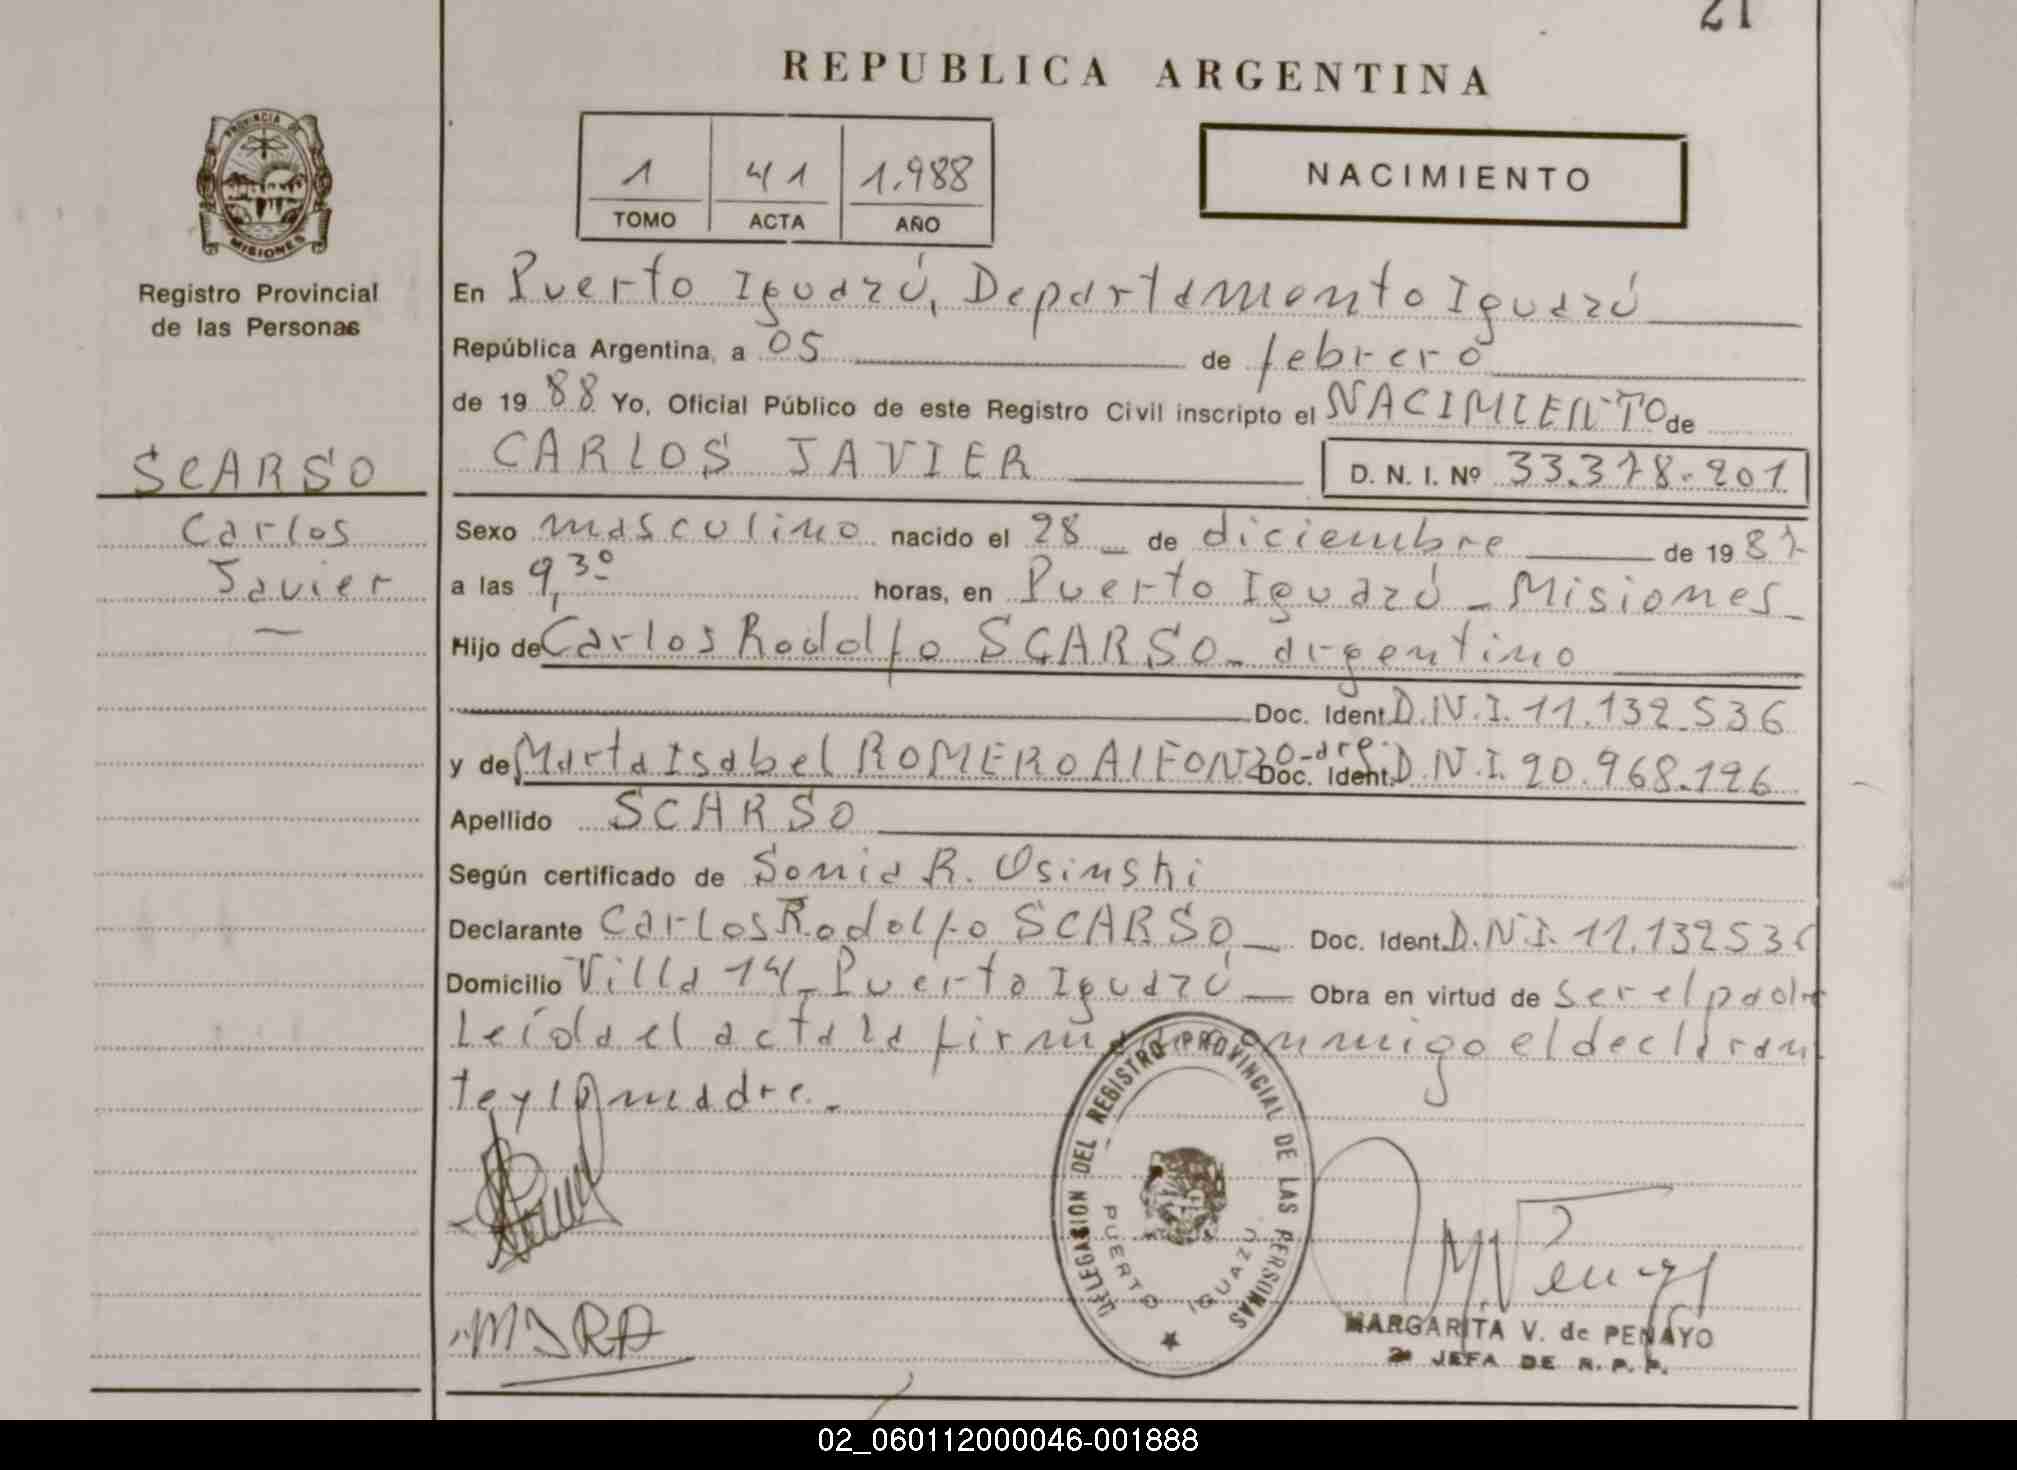 21
REPUBLICA ARGENTINA
PROVINCIA DE
MISIONES
1 41 1.988
TOMO ACTA AÑO
NACIMIENTO
Registro Provincial
de las Personas
SCARSO
Carlos
Javier
En Puerto Iguazú, Departamento Iguazú
República Argentina, a 05 de febrero
de 19 88 Yo, Oficial Público de este Registro Civil inscripto el NACIMIENTO de
CARLOS JAVIER D. N. I. Nº 33.378.201
Sexo masculino nacido el 28 de diciembre de 19 87
a las 9,30 horas, en Puerto Iguazú - Misiones -
Hijo de Carlos Rodolfo SCARSO - argentino
Doc. Ident. D.N.I. 11.132.536
y de Marta Isabel ROMERO ALFONZO - arg. Doc. Ident. D.N.I. 20.968.126
Apellido SCARSO
Según certificado de Sonia R. Osinski
Declarante Carlos Rodolfo SCARSO Doc. Ident. D.N.I. 11.132536
Domicilio Villa 14 - Puerto Iguazú Obra en virtud de ser el padre
Leída el acta la firma conmigo el declaran
te y la madre. -
DELEGASION DEL REGISTRO PROVINCIAL DE LAS PERSONAS
PUERTO IGUAZU
MIRA
MARGARITA V. de PENAYO
2ª JEFA DE R. P. P.
02_060112000046-001888